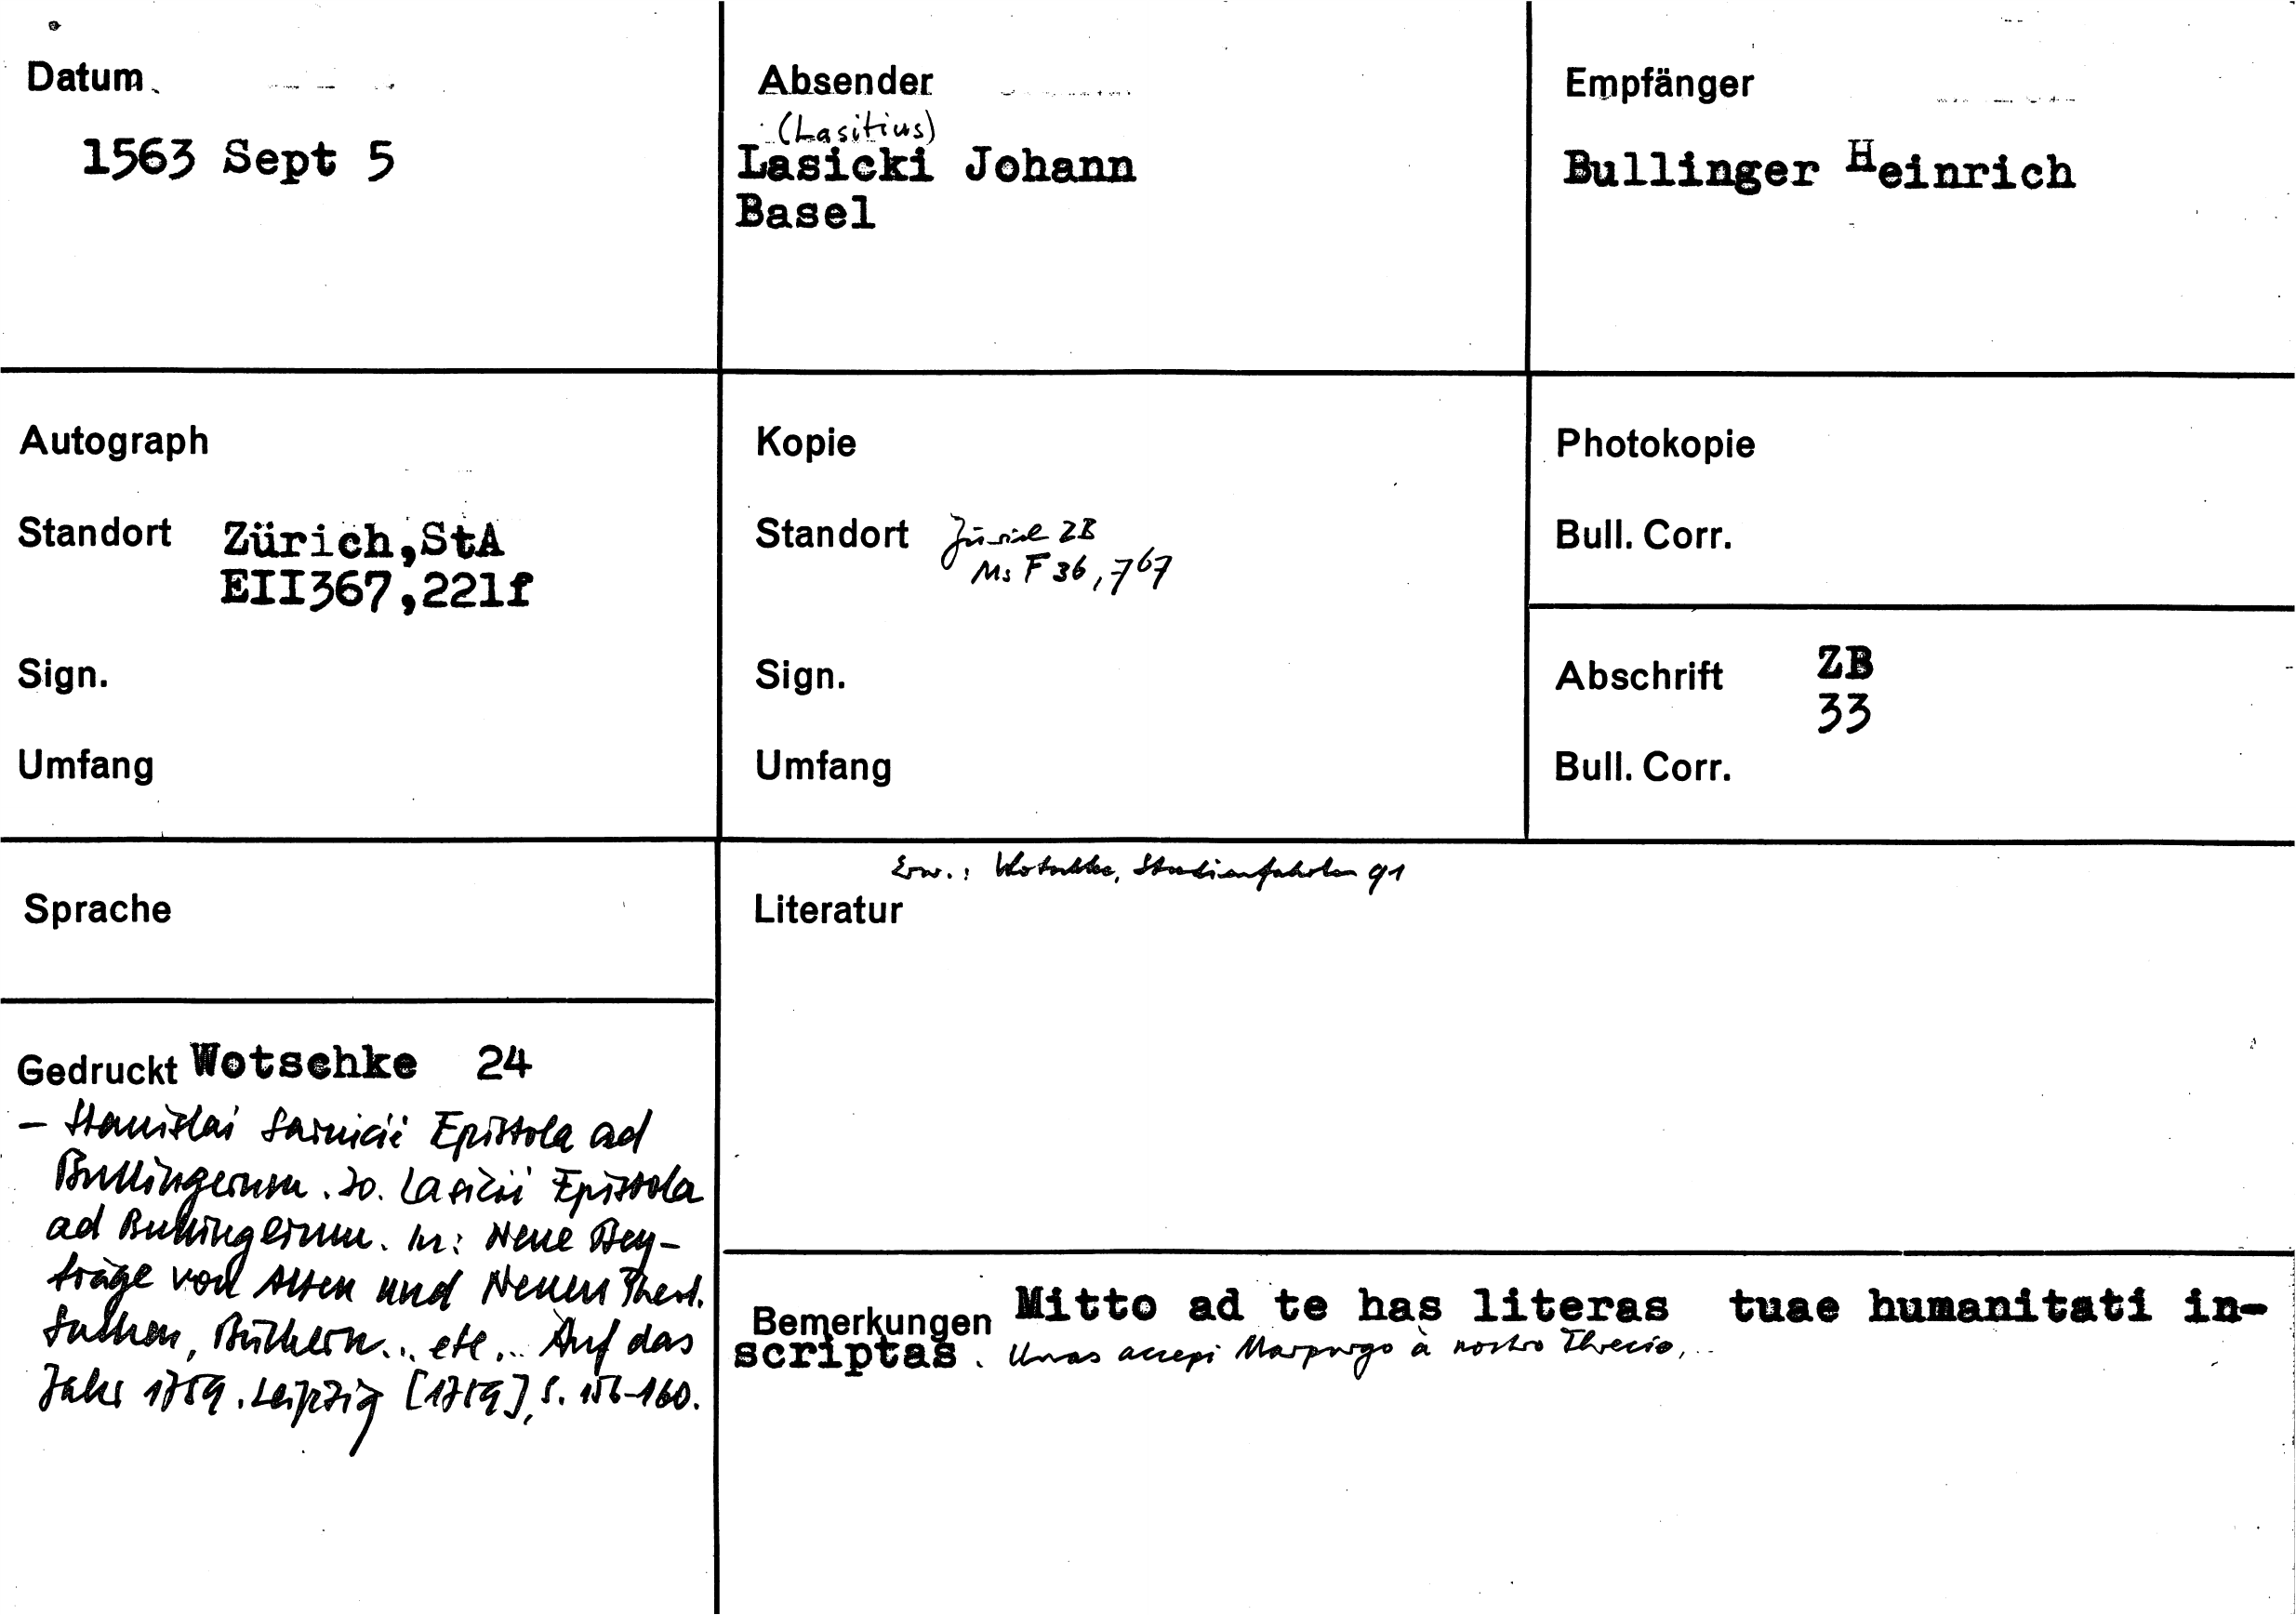 Datum
1563 Sept 5
Absender
(Lasitius)
Lasicki Johann
Basel
Empfänger
Bullinger Heinrich
Autograph
Standort Zürich,StA
EII367,221f
Sign.
Umfang
Kopie
Standort Zürich ZB
Ms F 36, 767
Sign.
Umfang
Photokopie
Bull. Corr.
Abschrift ZB
33
Bull. Corr.
Sprache
Gedruckt Wotschke 24
- Stanislai Sarnicii Epistola ad
Bullingerum. Jo. Lasicii Epistola
ad Bullingerum. In: Neue Bey-
träge von Alten und Neuen Theol.
Sachen, Büchern... etc... Auf das
Jahr 1759. Leipzig [1759], S. 156-160.
Erw.: Wotschke, Studienfahrten 91
Literatur
Bemerkungen Mitto ad te has literas tuae humanitati in-
scriptas. Unas accepi Marpurgo à nostro Threcio,...